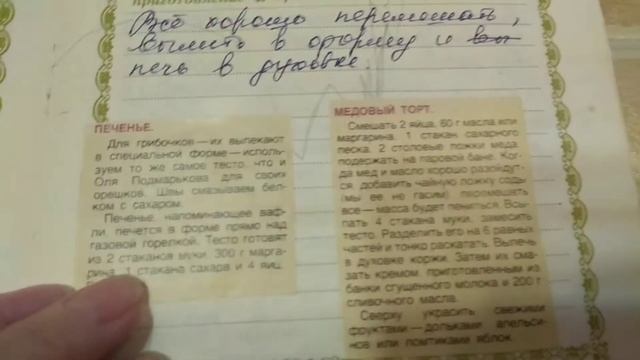 Всё хорошо перемешать,
вылить в форму и
печь в духовке.
ПЕЧЕНЬЕ.
Для грибочков — их выпекают
в специальной форме — исполь-
зуем то же самое тесто, что и
Оля Подмарькова для своих
орешков. Швы смазываем бел-
ком с сахаром.
Печенье, напоминающее ваф-
ли, печется в форме прямо над
газовой горелкой. Тесто готовят
из 2 стаканов муки, 300 г марга-
рина, 1 стакана сахара и 4 яиц.
МЕДОВЫЙ ТОРТ.
Смешать 2 яйца, 60 г масла или
маргарина, 1 стакан сахарного
песка, 2 столовые ложки меда,
подержать на паровой бане. Ког-
да мед и масло хорошо разойдут-
ся, добавить чайную ложку соды
(мы ее не гасим), перемешать
все — масса будет пениться. Всы-
пать 4 стакана муки, замесить
тесто. Разделить его на 6 равных
частей и тонко раскатать. Выпечь
в духовке коржи. Затем их сма-
зать кремом, приготовленным из
банки сгущенного молока и 200 г
сливочного масла.
Сверху украсить свежими
фруктами — дольками апельси-
нов или ломтиками яблок.